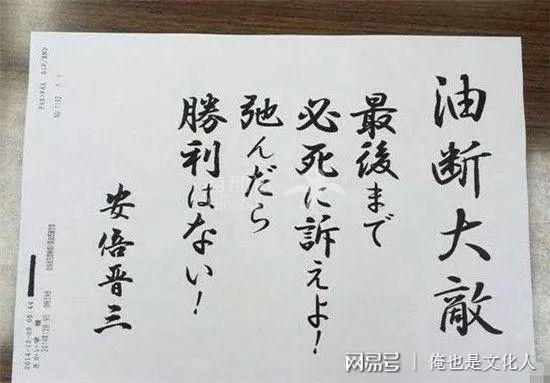 油断大敵
最後まで
必死に訴えよ!
弛んだら
勝利はない!
安倍晋三
2014-12-09 08:44
網易号 | 俺也是文化人